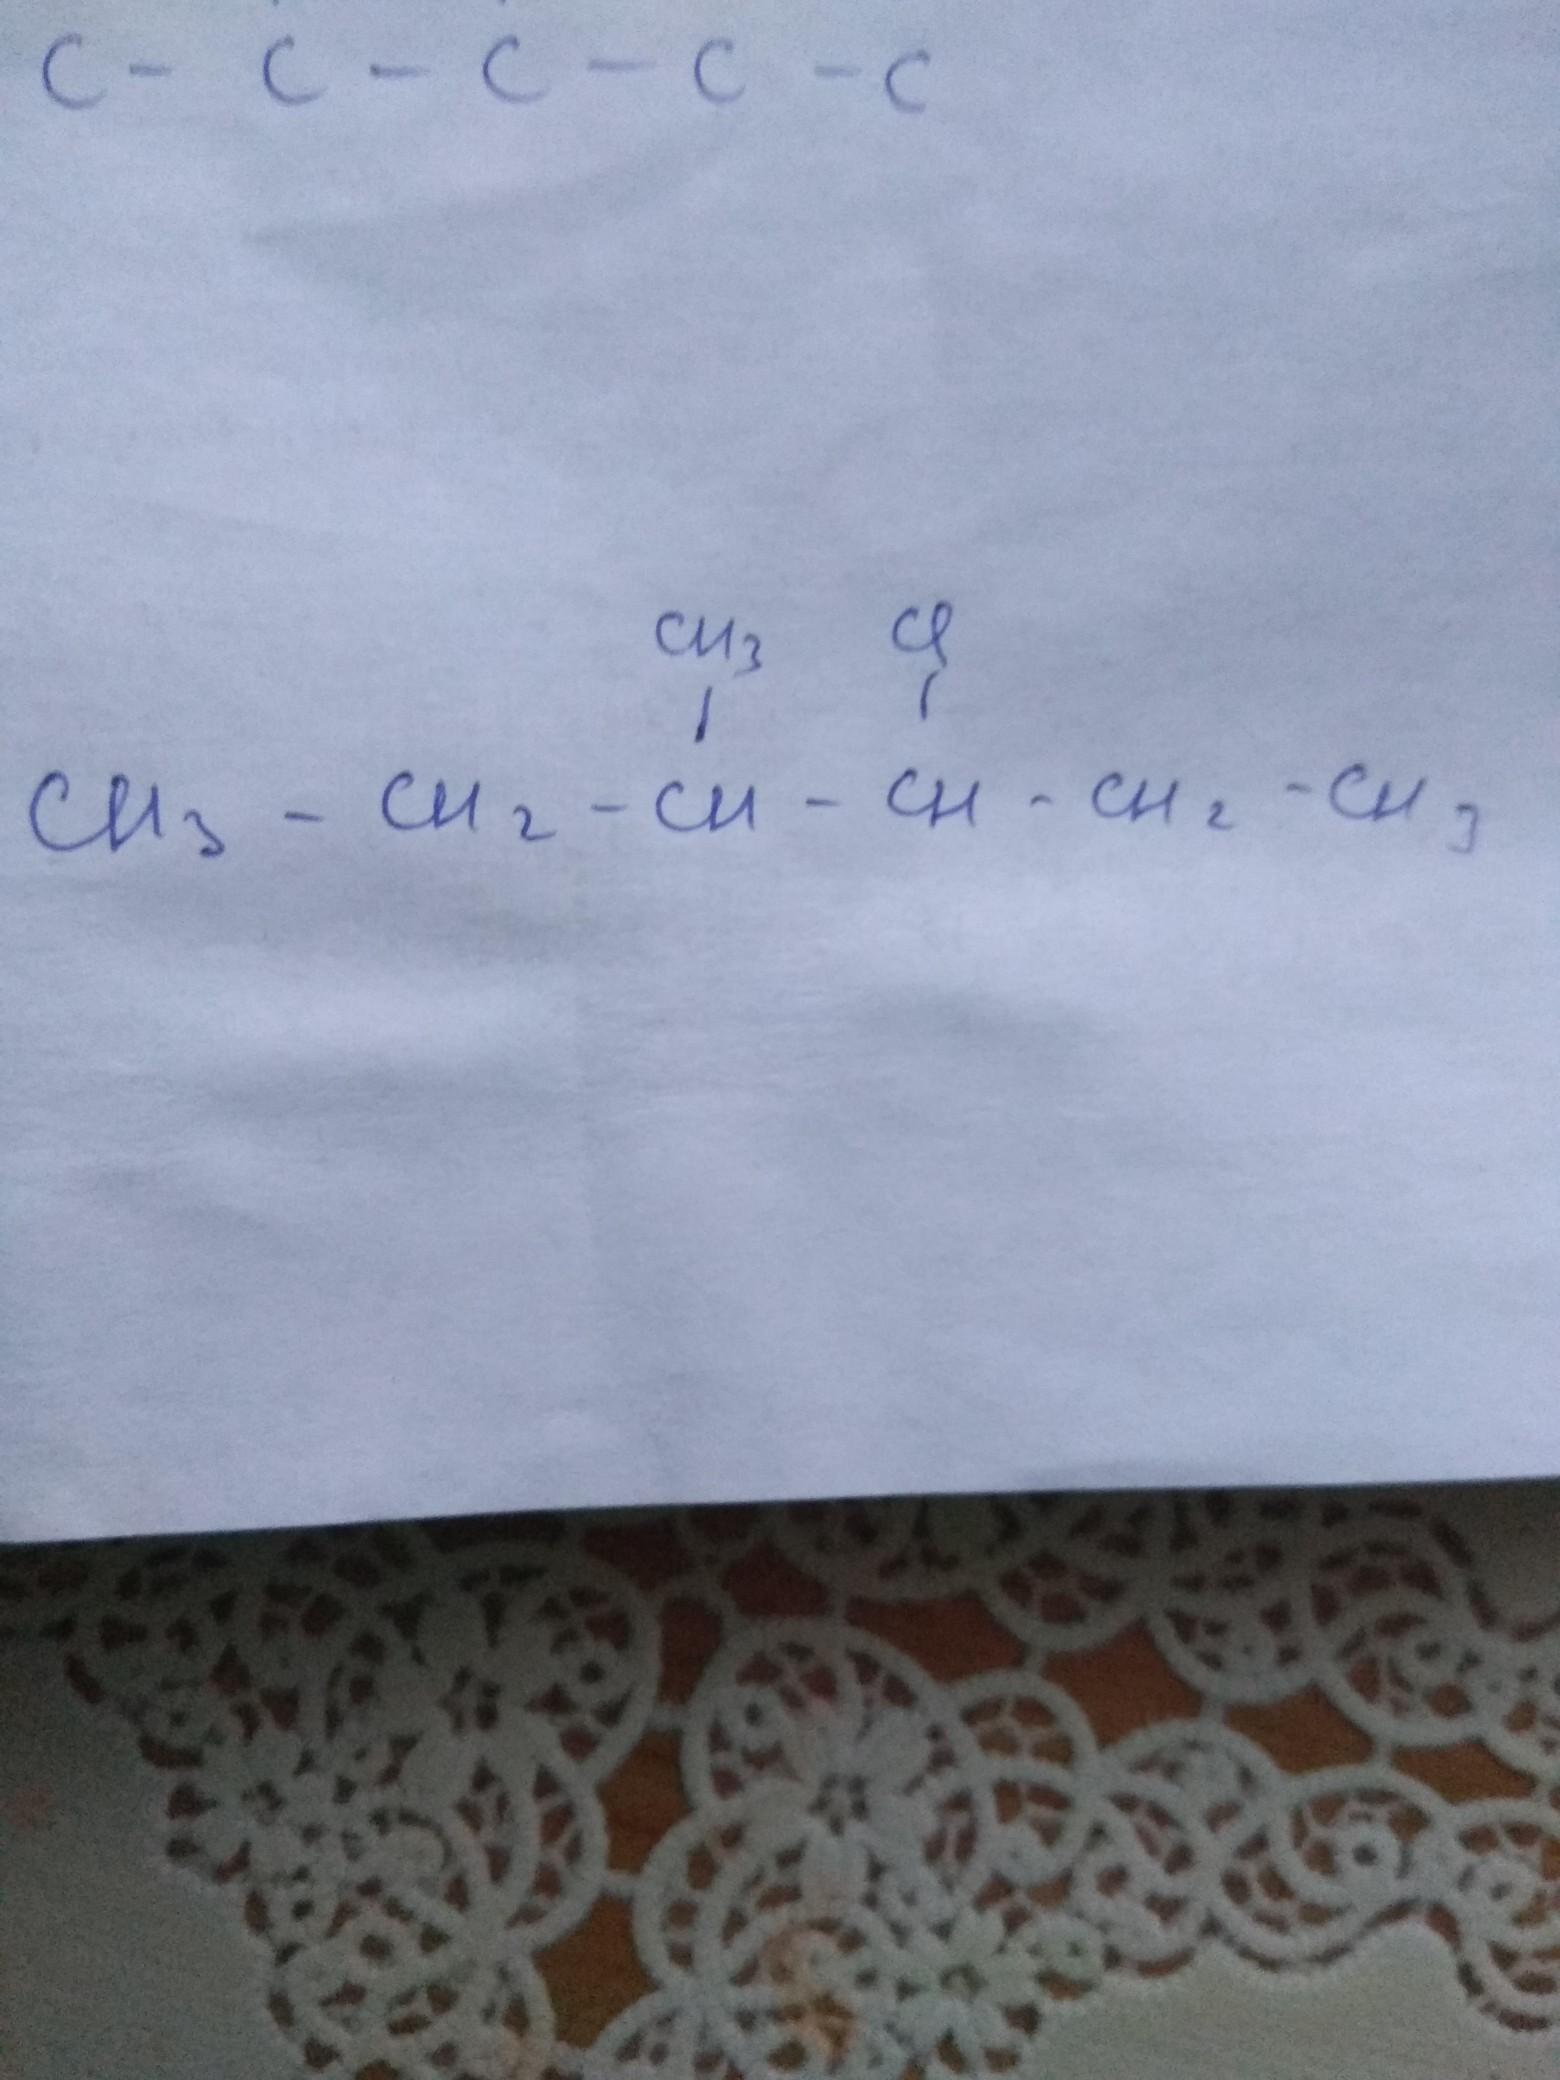 C - C - C - C - C
CH3 Cl
CH3 - CH2 - CH - CH - CH2 - CH3